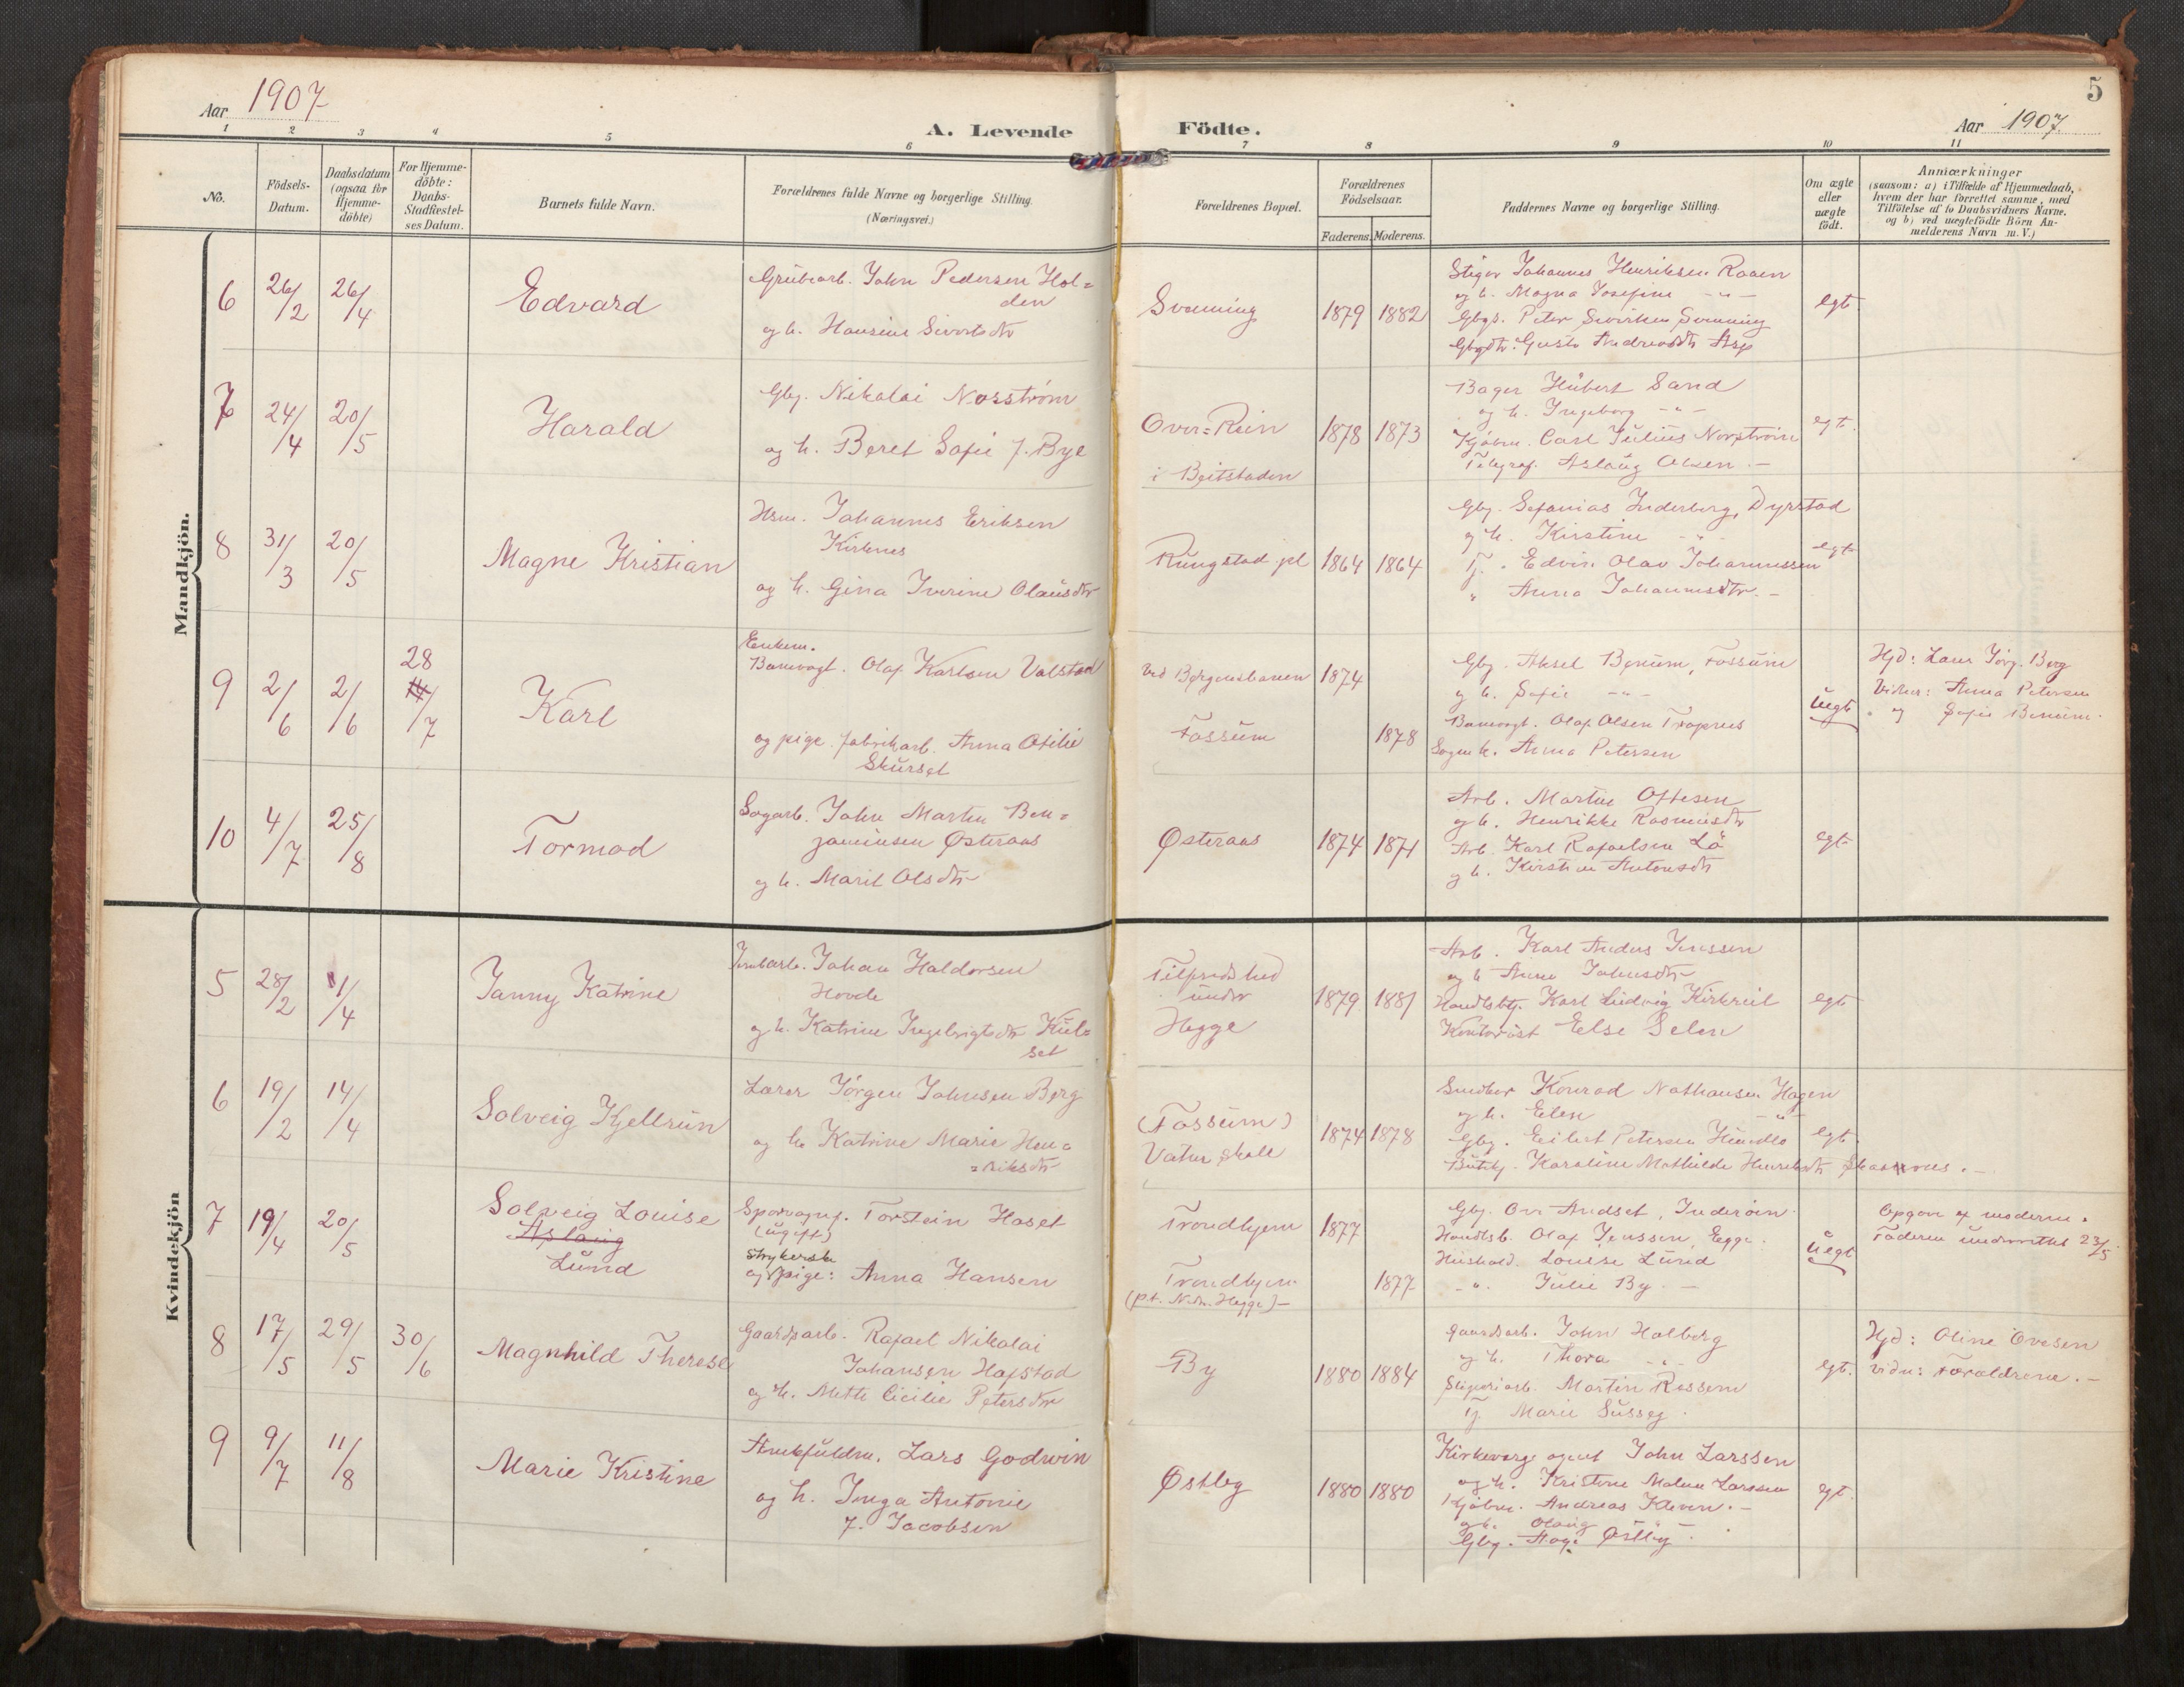 Aar 1907
A. Levende Födte.
Aar 1907.
5
1 2 3 4 5 6 7 8 9 10 11
No.
Födsels-
Datum.
Daabsdatum
(ogsaa for
Hjemme-
döbte)
For Hjemme-
döbte:
Daabs-
Stadfæstel-
ses Datum.
Barnets fulde Navn.
Forældrenes fulde Navne og borgerlige Stilling.
(Næringsvei.)
Forældrenes Bopæl.
Forældrenes
Födselsaar.
Faderens. Moderens.
Faddernes Navne og borgerlige Stilling.
Om ægte
eller
uægte
födt.
Anmærkninger
(saasom: a) i Tilfælde af Hjemmedaab,
hvem der har forrettet samme, med
Tilföielse af to Daabsvidners Navne.
og b) ved uægtefödte Börn An-
melderens Navn m. V.)
Mandkjön.
6 26/2 26/4 Edvard
Grubearb. John Pedersen Hol=
den
og h. Hansine Sivertsdtr
Svenning 1879 1882
Stiger Johannes Henriksen Raaen
og h. Magna Josefine -"-
Gbgs. Peter Sivertsen Svenning
Gbgdtr. Gusta Andreasdtr Asp
egt.
7 24/4 20/5 Harald
Gbg. Nikolai Nosström
og h. Beret Sofie f. Bye
Over=Rein
i Beitstaden
1878 1873
Bager Hübert Sand
og h. Ingeborg -"-
Kjöbm. Carl Julius Norström
Telegraf. Aslaug Olsen.-
egt.
8 31/3 20/5 Magne Kristian
Hsm. Johannes Eriksen
Kirknes
og h. Gina Iverine Olausdtr
Rungstad pl 1864 1864
Gbg. Sefanias Inderberg, Dyrstad
og h. Kirstine -"-
Tj. Edvin Olav Johannessen
" Anna Johannesdtr.-
egt.
9 2/6 2/6 28 14/7 Karl
Enkem.
Banevogt. Olaf Karlsen Valstad
og pige. fabrikarb. Anna Otilie
Skurset
Ved Bergensbanen 1874
Fossum 1878
Gbg. Aksel Benum, Fossum
og h. Sofie -"-
Banevogt. Olaf Olsen
Anna Petersen
Uegt.
Hjd: Lærer Jörg. Berg
Vidner: Anna Petersen
og Sofie Benum.
10 4/7 25/8 Tormod
Sagarb. John Martin Ben=
jaminsen Østeraas
og h. Marit Olsdtr
Østeraas 1874 1871
Arb. Martin Ottesen
og h. Henrikke Rasmusdtr
Arb. Karl Rafaelsen Lö
og h. Kirstine Antonsdtr
egt.
Kvindekjön
5 28/2 1/4 Janny Katrine
Johan Haldorsen
Hovde
og h. Katrine Ingebrigtsdtr Kul=
set
Tilfredshed
under
Hegge
1879 1881
Arb. Karl Anders Jenssen
og h Anna Johnsdtr
Handlsbtj. Karl Ludvig Kirkreit
Kontorist Else Selen
egt.
6 19/2 14/4 Solveig Kjellrun
Lærer Jörgen Johnsen Berg
og h. Katrine Marie Hen=
=riksdtr
(Fossum)
Vatne skole
1874 1878
Snedker Konrad Nathansen Hagen
og h. Elen -"-
Gbg. Eilert Petersen Humdlo
Butikj. Karoline Mathilde Henriksdtr
egt.
7 19/4 20/5 Solveig Louise
Aslaug
Lund
Sporvognf. Torstein Haset
(ugift)
Strykerske
og pige: Anna Hansen
Trondhjem 1877
Trondhjem
(p.t. Ndr. Hegge)- 1877
Gbg. Ove Andset, Inderöen.
Handlsb. Olaf Jenssen, Egge.
Hushold. Louise Lund
-"- Julie By.-
Uegt
Opgave af moderen.
Faderen underrettet 23/5.
8 17/5 29/5 30/6 Magnhild Therese
Gaardsarb. Rafael Nikolai
Johansen Hafstad
og h. Mette Cicilie Petersdtr
By 1880 1884
Gaardsarb. John Holberg
og h. Thora -"-
Sliperiarb. Martin Rossem
Tj. Marie Susseg.
egt.
Hjd: Oline Ovesen
Vidn: Forældrene.-
9 9/7 11/8 Marie Kristine
Amtsfuldm. Lars Godwin
og h. Inga Antonie
f. Jacobsen
Østby 1880 1880
Kirkeverge agent John Larssen
og h. Kristine Malene Larssen
Kjöbm. Andreas Kleven.-
og h. Olaug -"-
Gbg. Aage Østby.
egt.